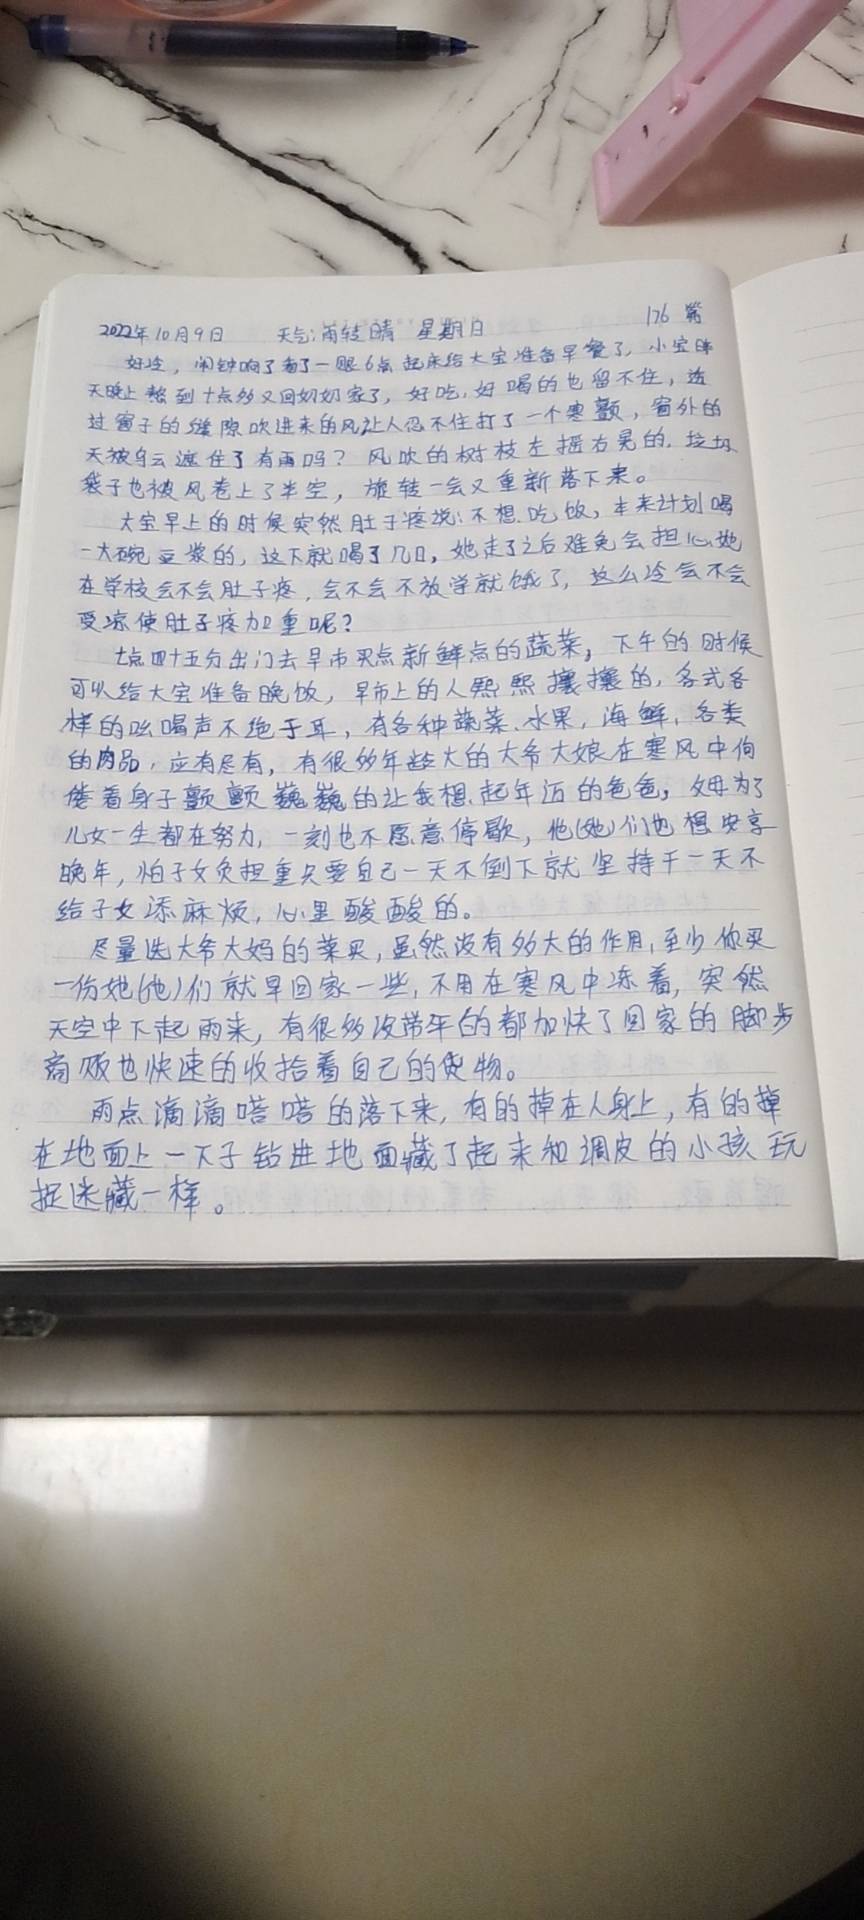 2022年10月9日 天气:雨转晴 星期日 176篇
好冷,闹钟响了看了一眼6点起床给大宝准备早餐了,小宝昨
天晚上熬到十点多又回奶奶家了,好吃,好喝的也留不住,透
过窗子的缝隙吹进来的风让人忍不住打了一个寒颤,窗外的
天被乌云遮住了有雨吗?风吹的树枝左摇右晃的,垃圾
袋子也被风卷上了半空,旋转一会又重新落下来。
大宝早上的时候突然肚子疼说:不想吃饭,本来计划喝
一大碗豆浆的,这下就喝了几口,她走了之后难免会担心她
在学校会不会肚子疼,会不会不放学就饿了,这么冷会不会
受凉使肚子疼加重呢?
七点四十五分出门去早市买点新鲜点的蔬菜,下午的时候
可以给大宝准备晚饭,早市上的人熙熙攘攘的,各式各
样的吆喝声不绝于耳,有各种蔬菜、水果,海鲜,各类
的肉品,应有尽有,有很多年龄大的大爷大娘在寒风中佝
偻着身子颤颤巍巍的让我想起年迈的爸爸,父母为了
儿女一生都在努力,一刻也不愿意停歇,他(她)们也想安享
晚年,怕子女负担重只要自己一天不倒下就坚持干一天不
给子女添麻烦,心里酸酸的。
尽量选大爷大妈的菜买,虽然没有多大的作用,至少你买
一份她(他)们就早回家一些,不用在寒风中冻着,突然
天空中下起雨来,有很多没带伞的都加快了回家的脚步
商贩也快速的收拾着自己的货物。
雨点滴滴嗒嗒的落下来,有的掉在人身上,有的掉
在地面上一下子钻进地面藏了起来和调皮的小孩玩
捉迷藏一样。